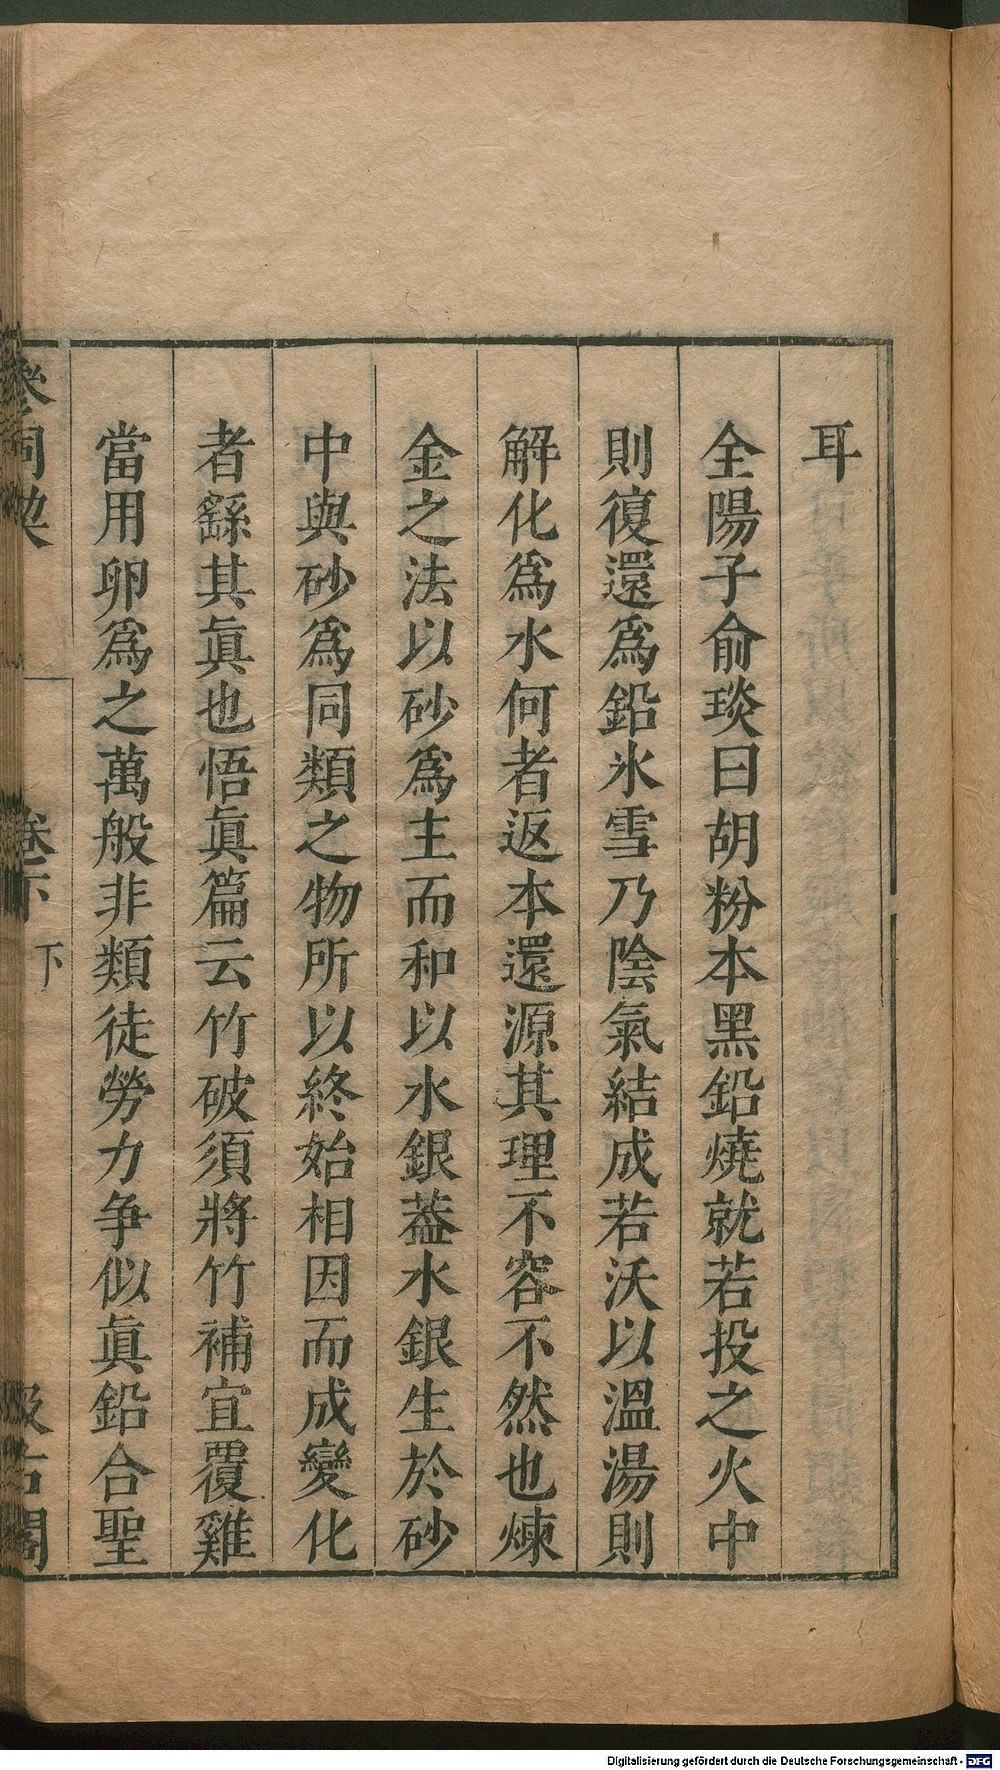 耳
全陽子俞琰曰胡粉本黑鉛燒就若投之火中
則復還爲鉛氷雪乃陰氣結成若沃以溫湯則
解化爲水何者返本還源其理不容不然也煉
金之法以砂爲主而和以水銀葢水銀生於砂
中與砂爲同類之物所以終始相因而成變化
者繇其眞也悟眞篇云竹破須將竹補宜覆雞
當用卵爲之萬般非類徒勞力争似眞鉛合聖
參同契 卷下下 汲古閣
Digitalisierung gefördert durch die Deutsche Forschungsgemeinschaft - DFG